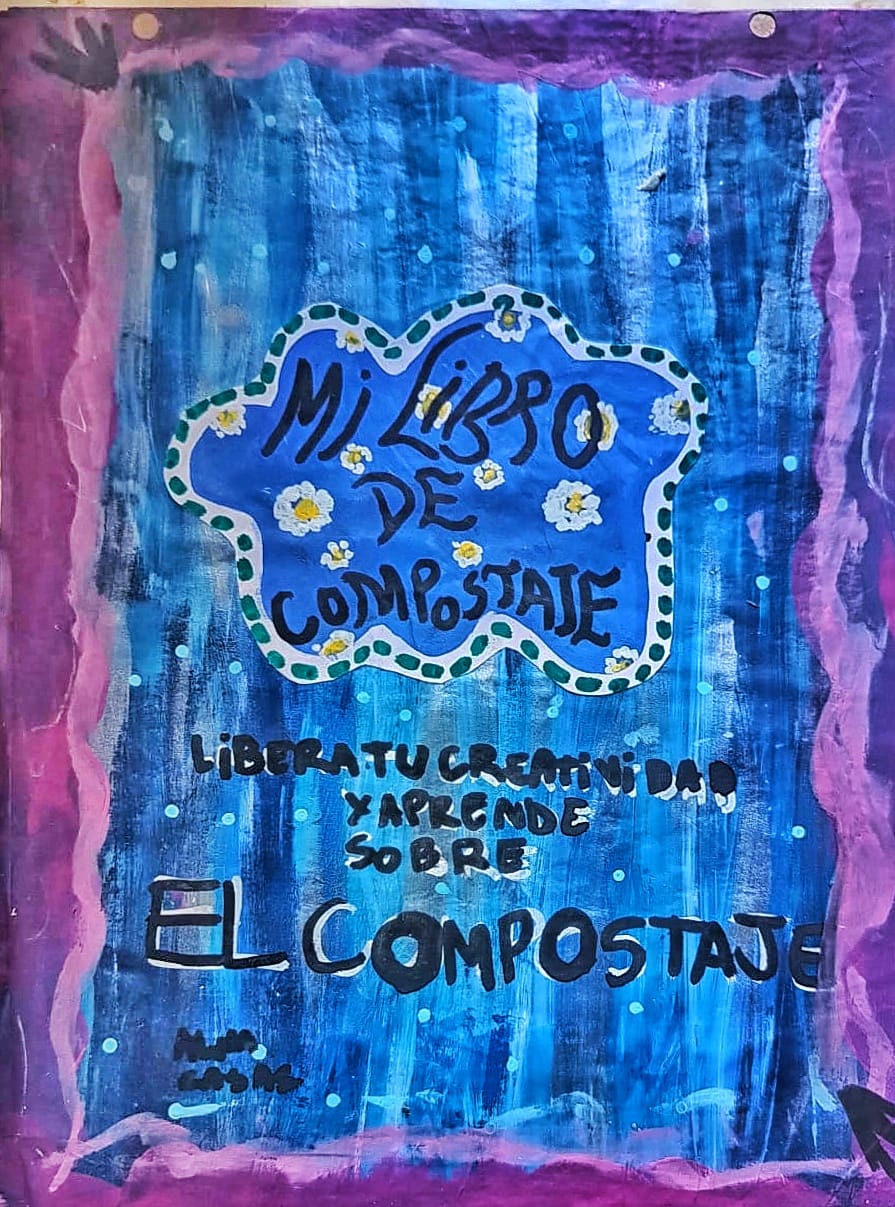 Mi LiBRO
DE
COMPOSTAJE
LiBERA TU CREATiViDAD
Y APRENDE
SOBRE
EL COMPOSTAJE